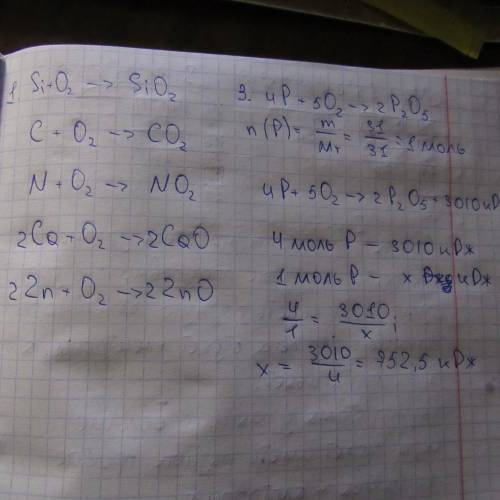 1. Si + O₂ → SiO₂
C + O₂ → CO₂
N + O₂ → NO₂
2Ca + O₂ → 2CaO
2Zn + O₂ → 2ZnO
3. 4P + 5O₂ → 2P₂O₅
n(P) = m/Mr = 31/31 = 1 моль
4P + 5O₂ → 2P₂O₅ + 3010 кДж
4 моль P – 3010 кДж
1 моль P – x кДж
4/1 = 3010/x ;
x = 3010/4 = 752,5 кДж